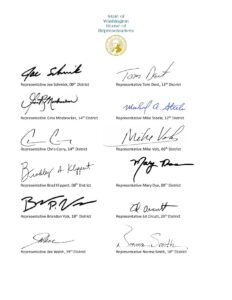 State of
Washington
House of
Representatives
Joe Schmick
Tom Dent
Representative Joe Schmick, 09th District
Representative Tom Dent, 13th District
Representative Gina Mosbrucker, 14th District
Representative Mike Steele, 12th District
Mike Volz
Representative Chris Corry, 14th District
Representative Mike Volz, 06th District
Bradley A Klippert
Representative Brad Klippert, 08th District
Representative Mary Dye, 09th District
Ed Orcutt
Representative Brandon Vick, 18th District
Representative Ed Orcutt, 20th District
Norma Smith
Representative Jim Walsh, 19th District
Representative Norma Smith, 10th District